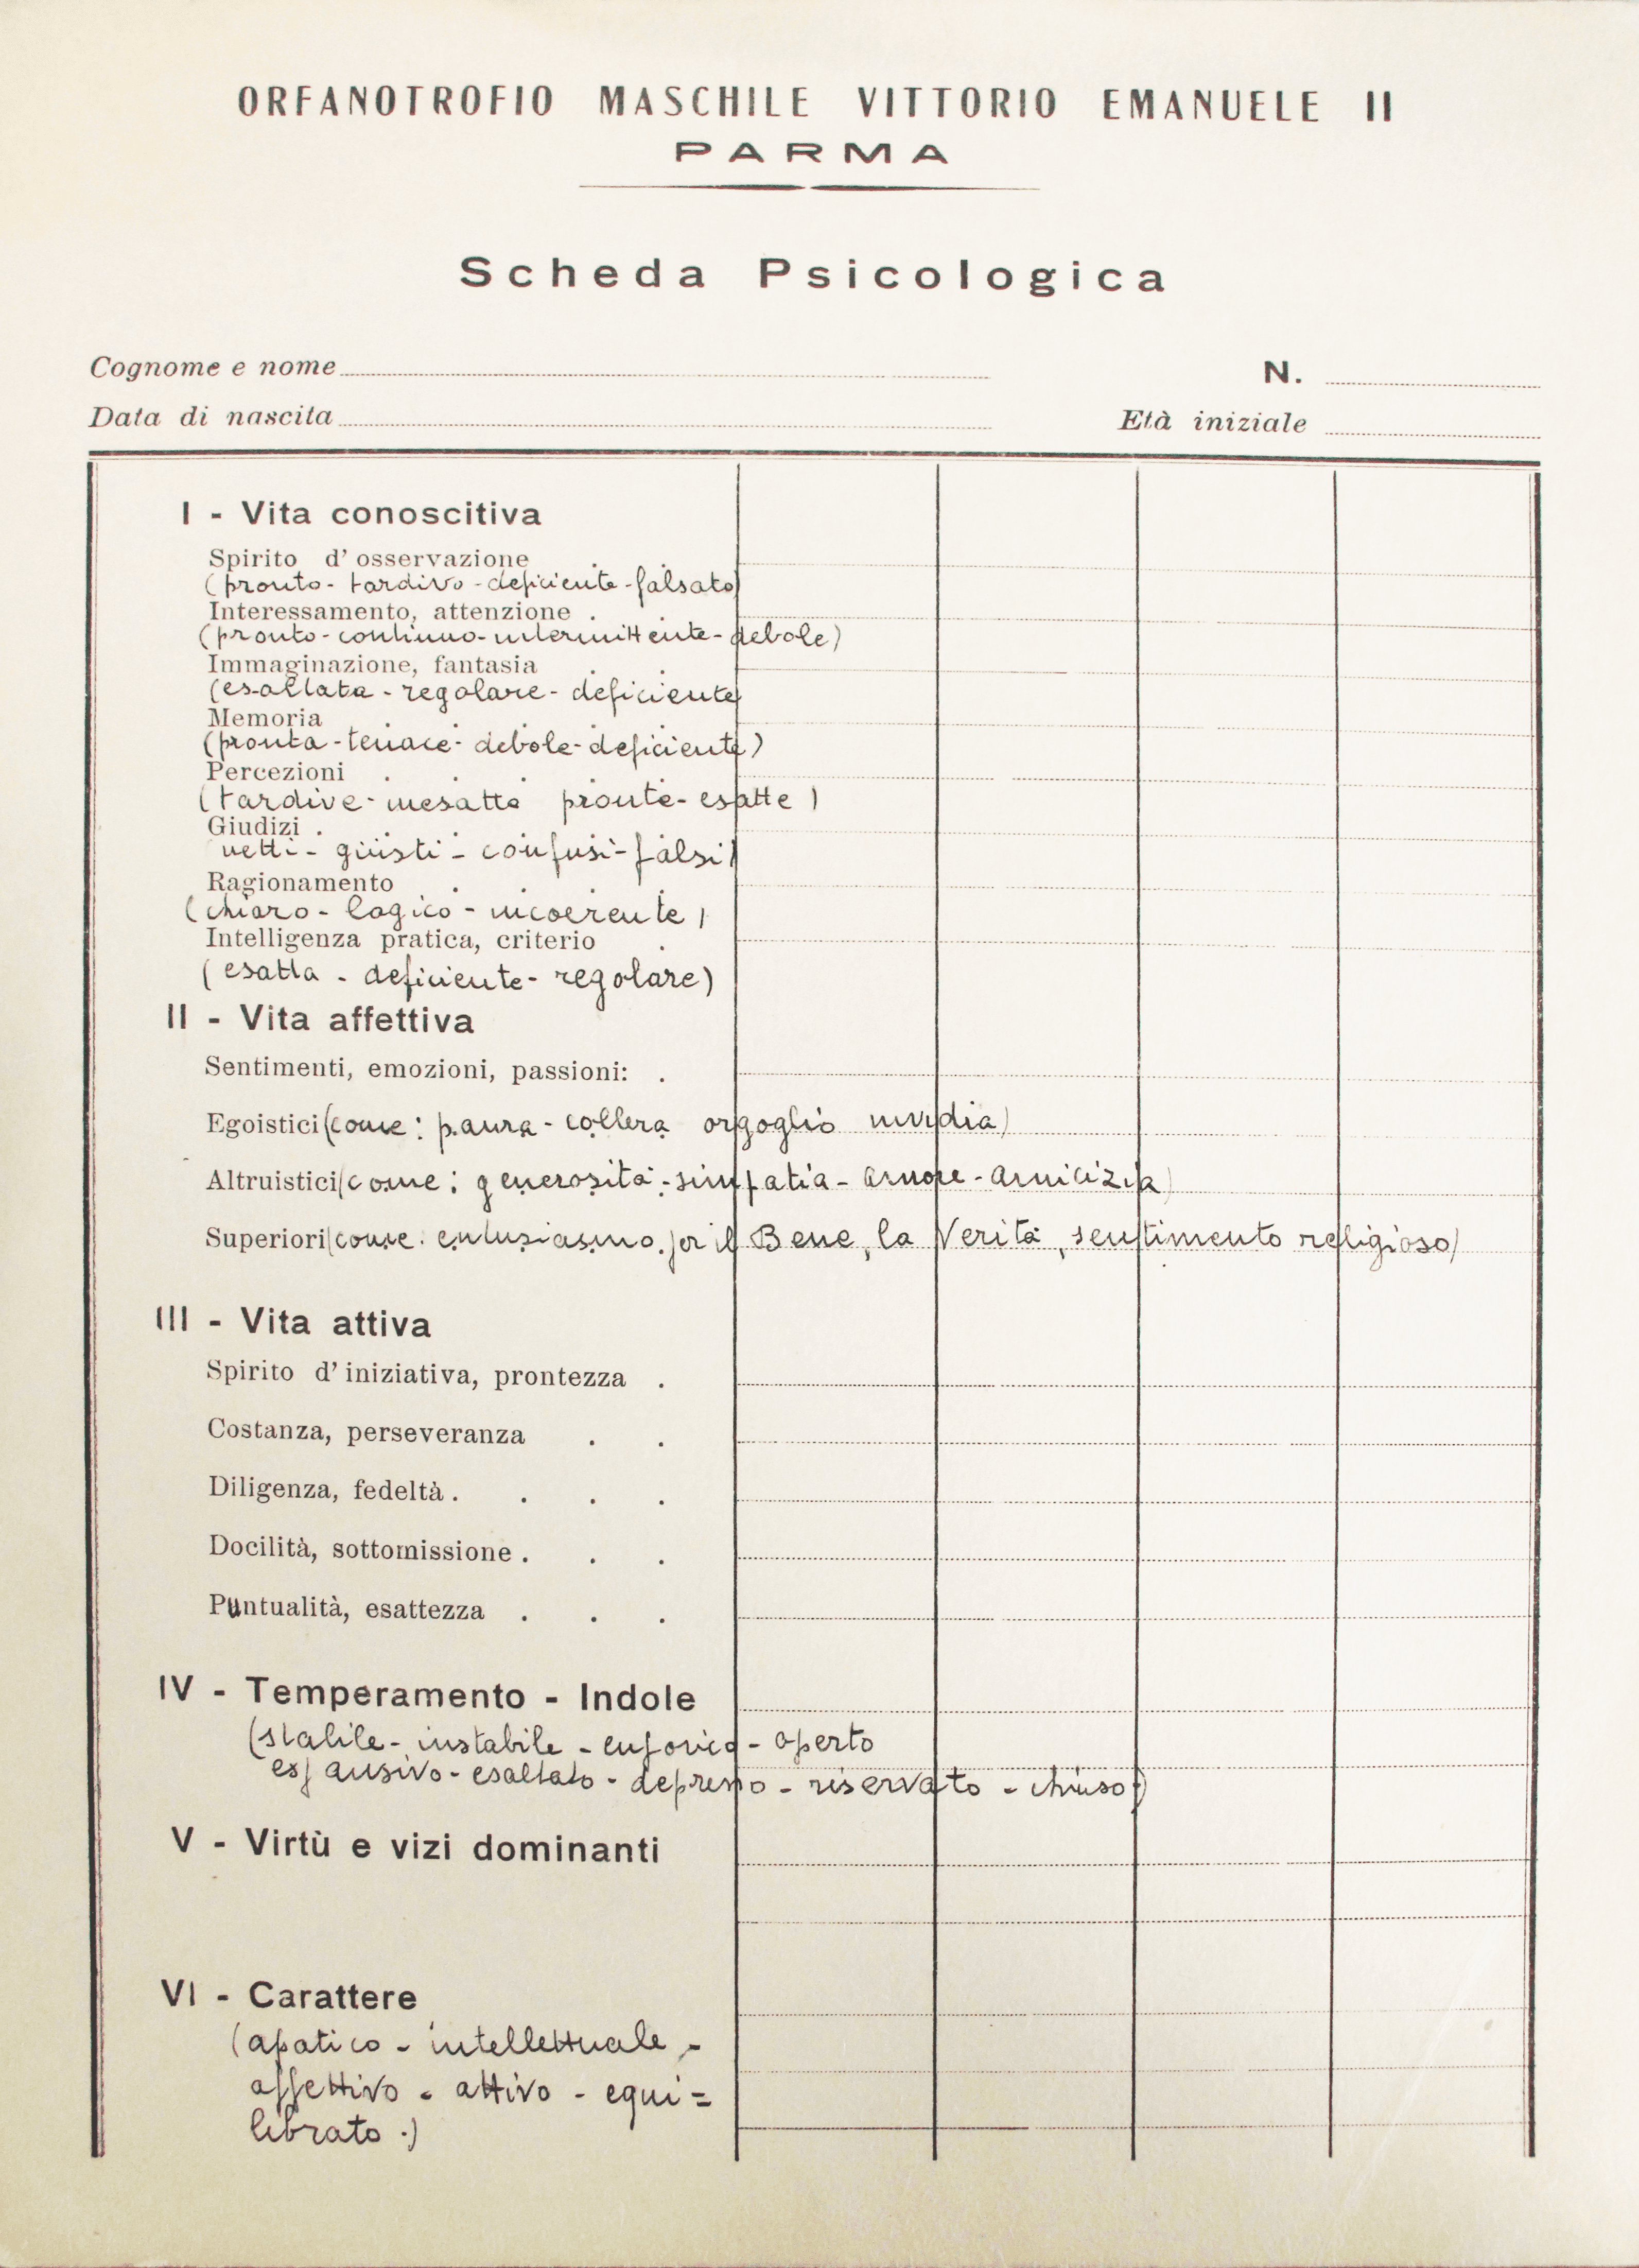 ORFANOTROFIO MASCHILE VITTORIO EMANUELE II
PARMA
Scheda Psicologica
Cognome e nome
N.
Data di nascita
Età iniziale
I - Vita conoscitiva
Spirito d' osservazione
(pronto - tardivo - deficiente - falsato)
Interessamento, attenzione
(pronto - continuo - intermittente - debole)
Immaginazione, fantasia
(esaltata - regolare - deficiente)
Memoria
(pronta - tenace - debole - deficiente)
Percezioni
(tardive - inesatte pronte - esatte)
Giudizi
netti - giusti - confusi - falsi)
Ragionamento
(chiaro - logico - incoerente)
Intelligenza pratica, criterio
(esatta - deficiente - regolare)
II - Vita affettiva
Sentimenti, emozioni, passioni:
Egoistici (come: paura - collera orgoglio invidia)
Altruistici (come: generosità - simpatia - amore - amicizia)
Superiori (come: entusiasmo per il Bene, la Verità, sentimento religioso)
III - Vita attiva
Spirito d' iniziativa, prontezza
Costanza, perseveranza
Diligenza, fedeltà
Docilità, sottomissione
Puntualità, esattezza
IV - Temperamento - Indole
(stabile - instabile - euforico - aperto
espansivo - esaltato - depresso - riservato - chiuso)
V - Virtù e vizi dominanti
VI - Carattere
(apatico - intellettuale -
affettivo - attivo - equi=
librato.)